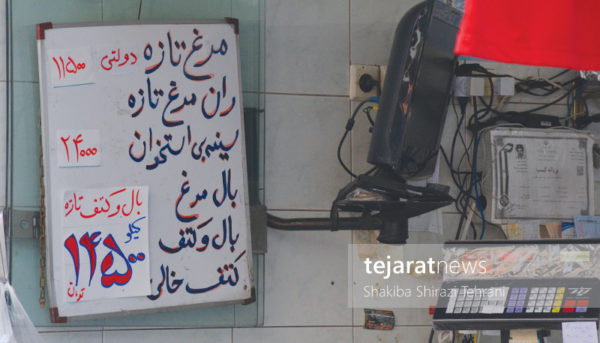 مرغ تازه دولتی ۱۱۵۰۰
ران مرغ تازه
سینه بی استخوان ۲۴۰۰۰
بال مرغ
بال و کتف
کتف خالی
بال و کتف تازه
کیلو
۱۴۵۰۰
تومان
tejaratnews
Shakiba Shirazi Tehrani